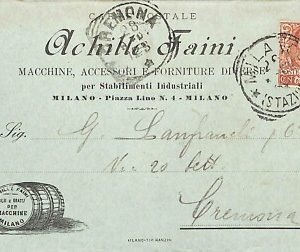 CARTOLINA POSTALE
Achille Faini
MACCHINE, ACCESSORI E FORNITURE DIVERSE
per Stabilimenti Industriali
MILANO - Piazza Lino N. 4 - MILANO
CREMONA
MILANO
(STAZI
Sig.
G. Lanfranchi
Via 20 Sett
Cremona
ACHILLE FAINI
OLII e GRASSI
PER
MACCHINE
MILANO